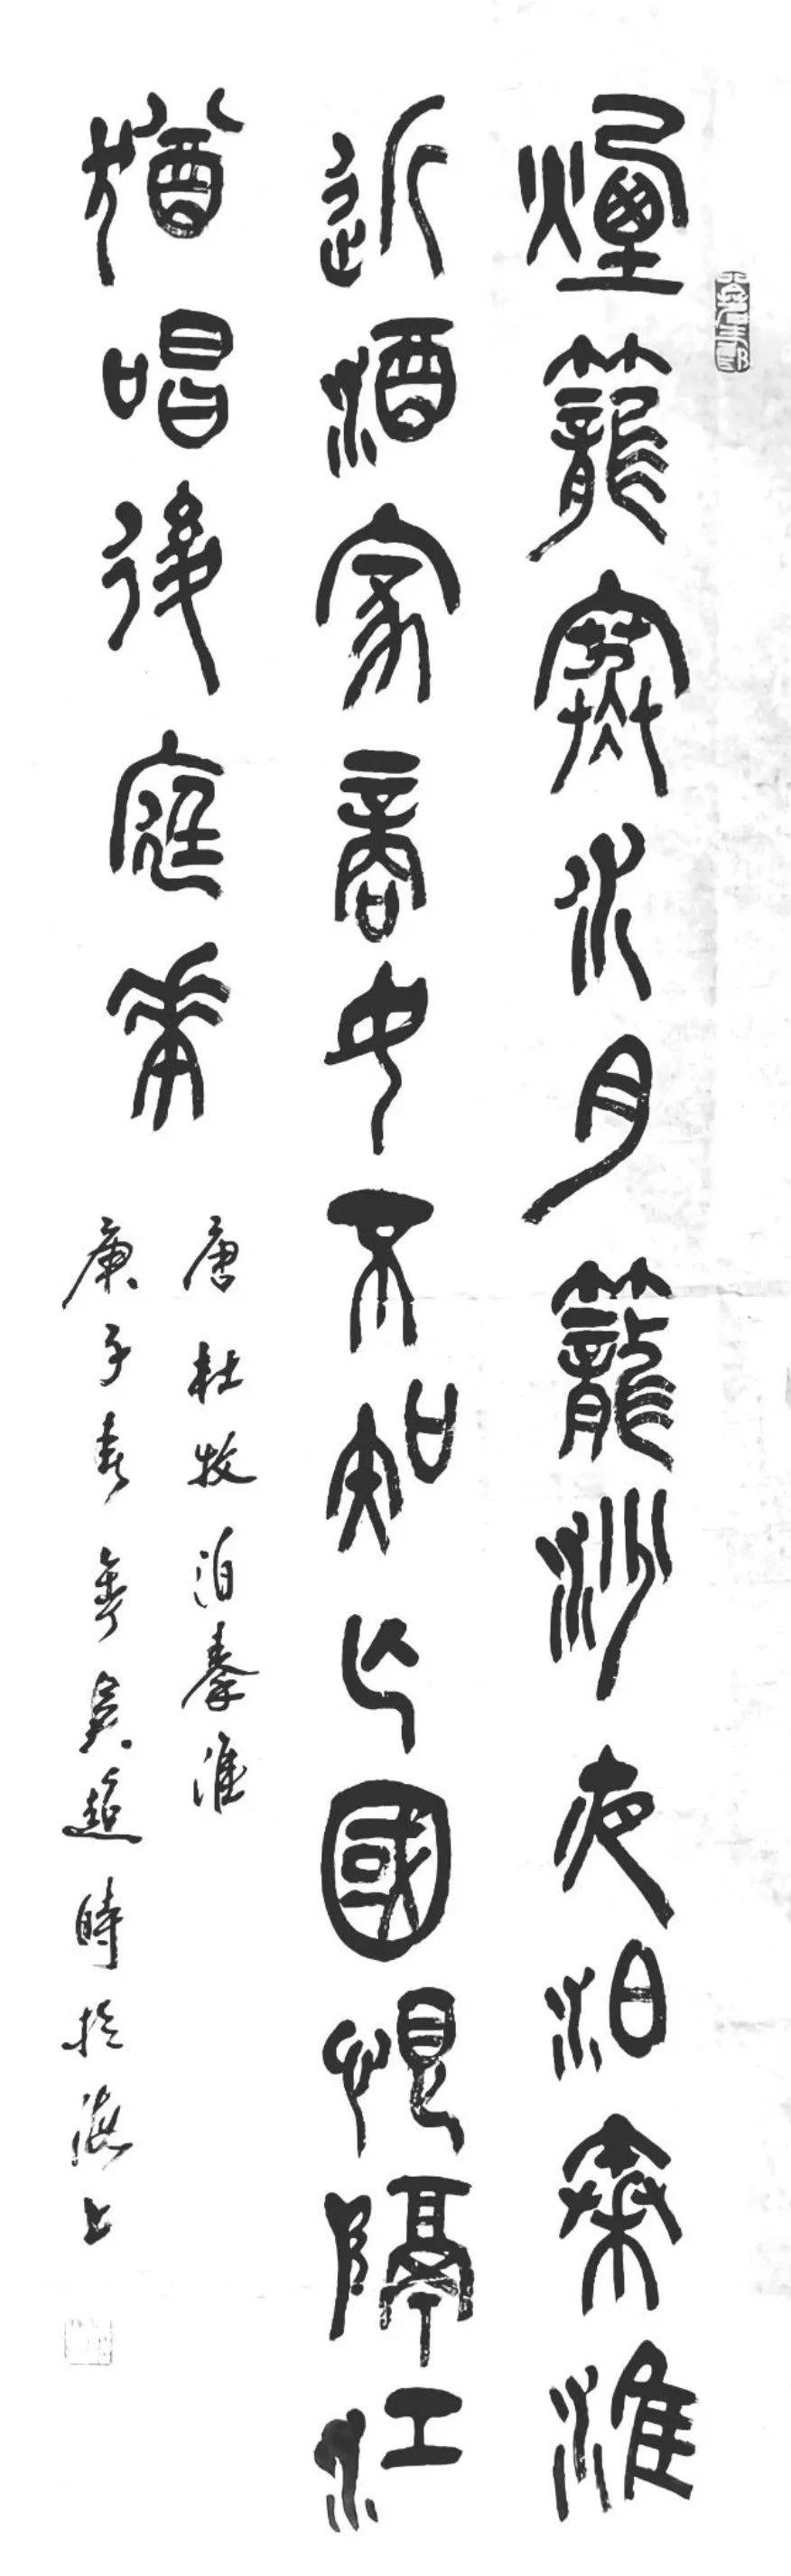 煙籠寒水月籠沙夜泊秦淮
近酒家商女不知亡國恨隔江
猶唱後庭華
唐杜牧泊秦淮
庚子春 吳超時於海上